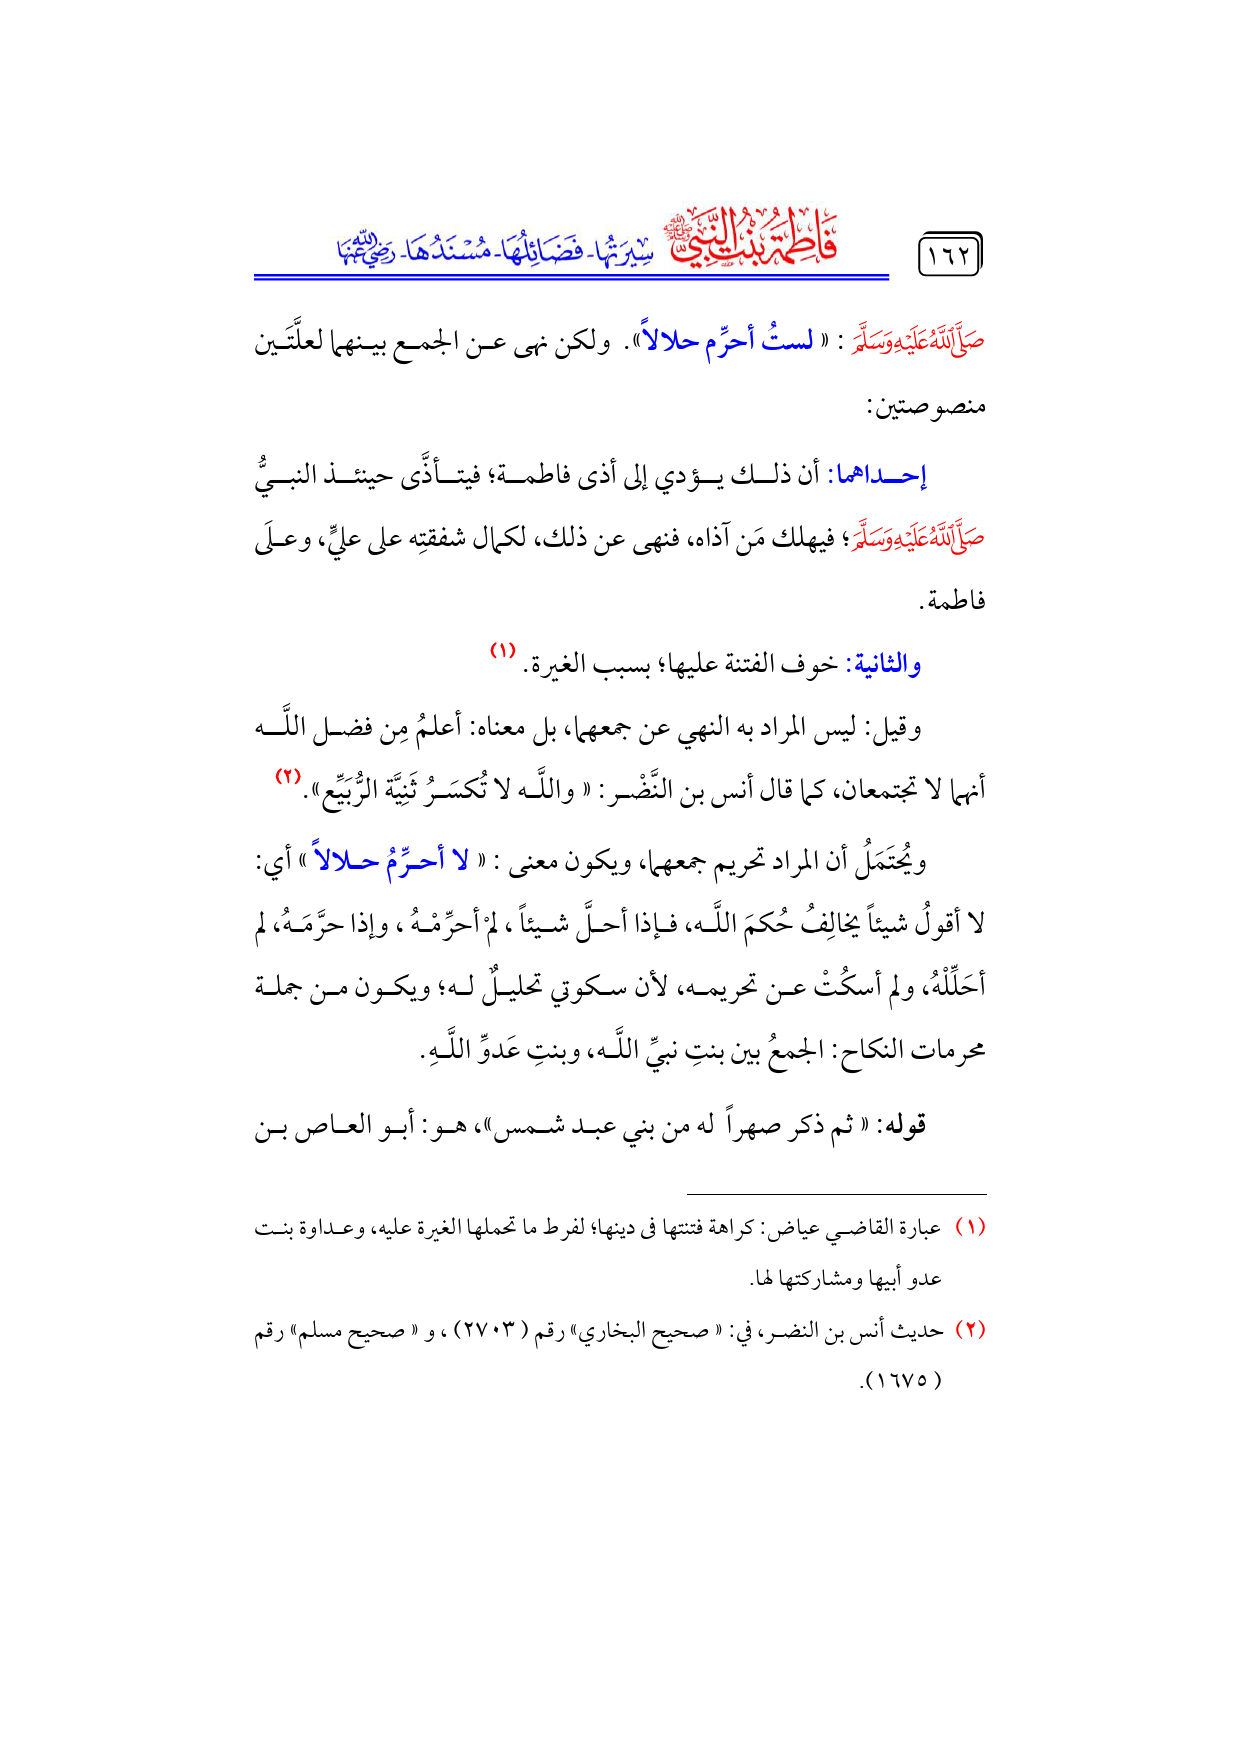 ١٦٢
فَاطِمَةُ بِنْتُ النَّبِيِّ ﷺ سِيرَتُهَا - فَضَائِلُهَا - مُسْنَدُهَا - رَضِيَ اللَّهُ عَنْهَا
صَلَّى اللَّهُ عَلَيْهِ وَسَلَّمَ : « لستُ أحرِّم حلالاً». ولكن نهى عن الجمع بينهما لعلَّتَين
منصوصتين:
إحداهما: أن ذلك يؤدي إلى أذى فاطمة؛ فيتأذَّى حينئذ النبيُّ
صَلَّى اللَّهُ عَلَيْهِ وَسَلَّمَ؛ فيهلك مَن آذاه، فنهى عن ذلك، لكمال شفقتِه على عليٍّ، وعلَى
فاطمة.
والثانية: خوف الفتنة عليها؛ بسبب الغيرة. (١)
وقيل: ليس المراد به النهي عن جمعهما، بل معناه: أعلمُ مِن فضل اللَّه
أنهما لا تجتمعان، كما قال أنس بن النَّضْر: « واللَّه لا تُكسَرُ ثَنِيَّة الرُّبَيِّع».(٢)
ويُحتَمَلُ أن المراد تحريم جمعهما، ويكون معنى : « لا أحرِّمُ حلالاً » أي:
لا أقولُ شيئاً يخالِفُ حُكمَ اللَّه، فإذا أحلَّ شيئاً ، لمْ أحرِّمْهُ ، وإذا حرَّمَهُ، لم
أحَلِّلْهُ، ولم أسكُتْ عن تحريمه، لأن سكوتي تحليلٌ له؛ ويكون من جملة
محرمات النكاح: الجمعُ بين بنتِ نبيِّ اللَّه، وبنتِ عَدوِّ اللَّهِ.
قوله: « ثم ذكر صهراً له من بني عبد شمس»، هو: أبو العاص بن
(١) عبارة القاضي عياض: كراهة فتنتها فى دينها؛ لفرط ما تحملها الغيرة عليه، وعداوة بنت
عدو أبيها ومشاركتها لها.
(٢) حديث أنس بن النضر، في: « صحيح البخاري» رقم ( ٢٧٠٣) ، و « صحيح مسلم» رقم
( ١٦٧٥).